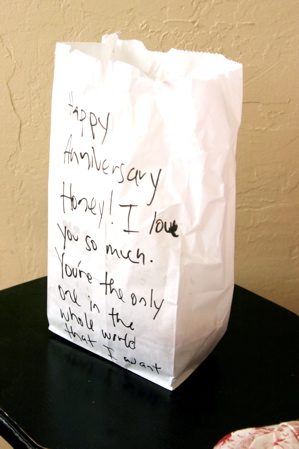 Happy
Anniversary
Honey! I love
you so much.
You're the only
one in the
whole world
that I want